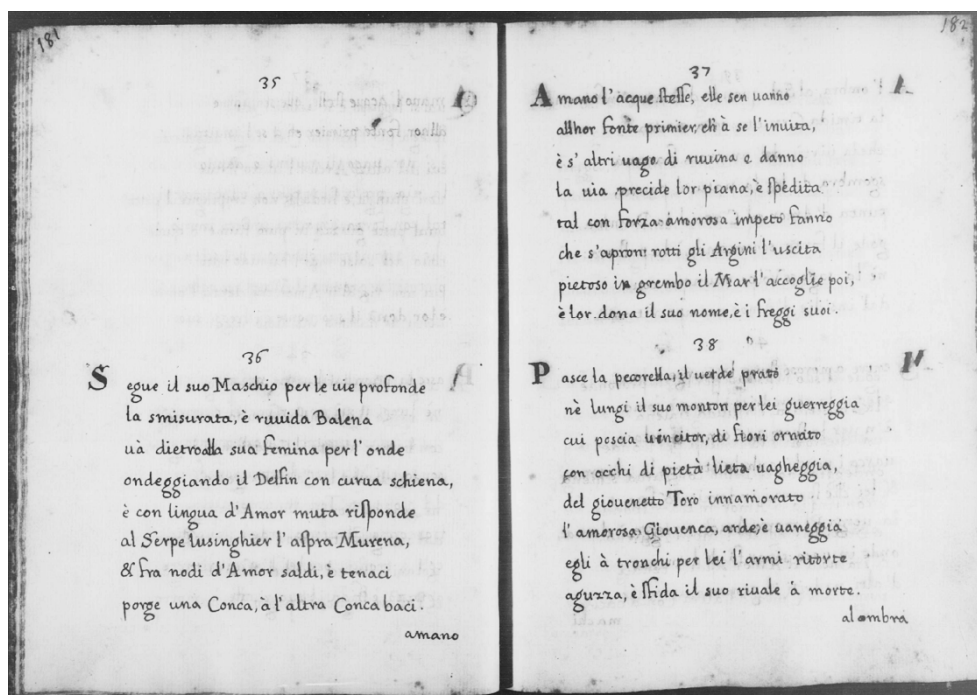 181
35
36
Segue il suo Maschio per le uie profonde
la smisurata, è ruuida Balena
uà dietro alla sua femina per l'onde
ondeggiando il Delfin con curua schiena,
è con lingua d'Amor muta risponde
al Serpe lusinghier l'aspra Murena,
& fra nodi d'Amor saldi, è tenaci
porge una Conca, à l'altra Conca baci.
amano
182
37
Amano l'acque stesse, elle sen uanno
allhor fonte primier, ch'à se l'inuita,
è s'altri uago di ruuina e danno
la uia precide lor piana, è spedita
tal con forza amorosa impeto fanno
che s'apron rotti gli Argini l'uscita
pietoso in grembo il Mar l'accoglie poi,
è lor dona il suo nome, è i freggi suoi.
38
Pasce la pecorella, il uerde prato
nè lungi il suo monton per lei guerreggia
cui poscia uincitor, di fiori ornato
con occhi di pietà lieta uagheggia,
del giouenetto Toro innamorato
l'amorosa Giouenca, arde, è uaneggia
egli à tronchi per lei l'armi ritorte
aguzza, è sfida il suo riuale à morte.
al ombra